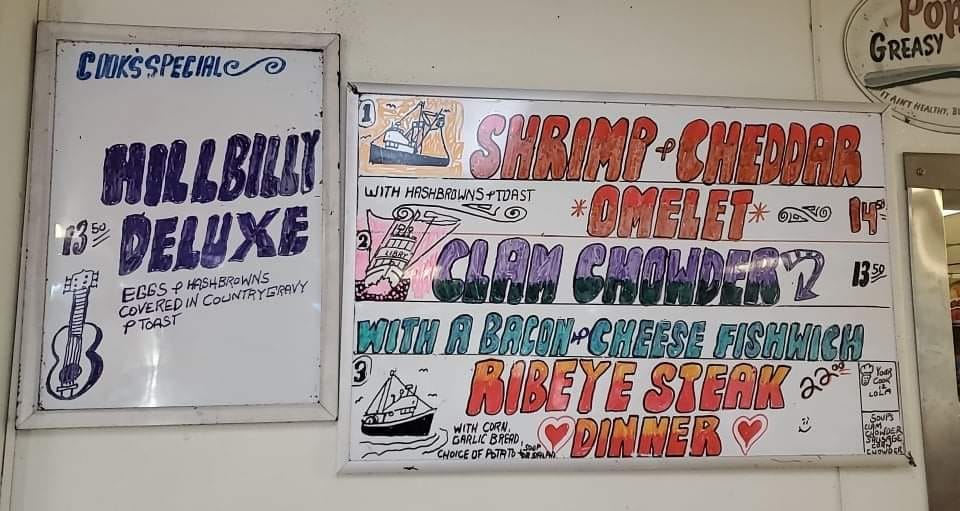 COOK'S SPECIAL
HILLBILLY
DELUXE
13 50
EGGS & HASHBROWNS
COVERED IN COUNTRY GRAVY
& TOAST
1
SHRIMP & CHEDDAR
WITH HASHBROWNS & TOAST
*OMELET*
14 50
2
LIBBY
CLAM CHOWDER
13 50
WITH A BACON & CHEESE FISHWICH
3
RIBEYE STEAK
22 00
DINNER
WITH CORN,
GARLIC BREAD,
CHOICE OF POTATO & SOUP
OR SALAD
YOUR
COOK
IZ
SOUPS
CLAM
CHOWDER
SAUSAGE
CORN
CHOWDER
Pop
GREASY
IT AIN'T HEALTHY, B